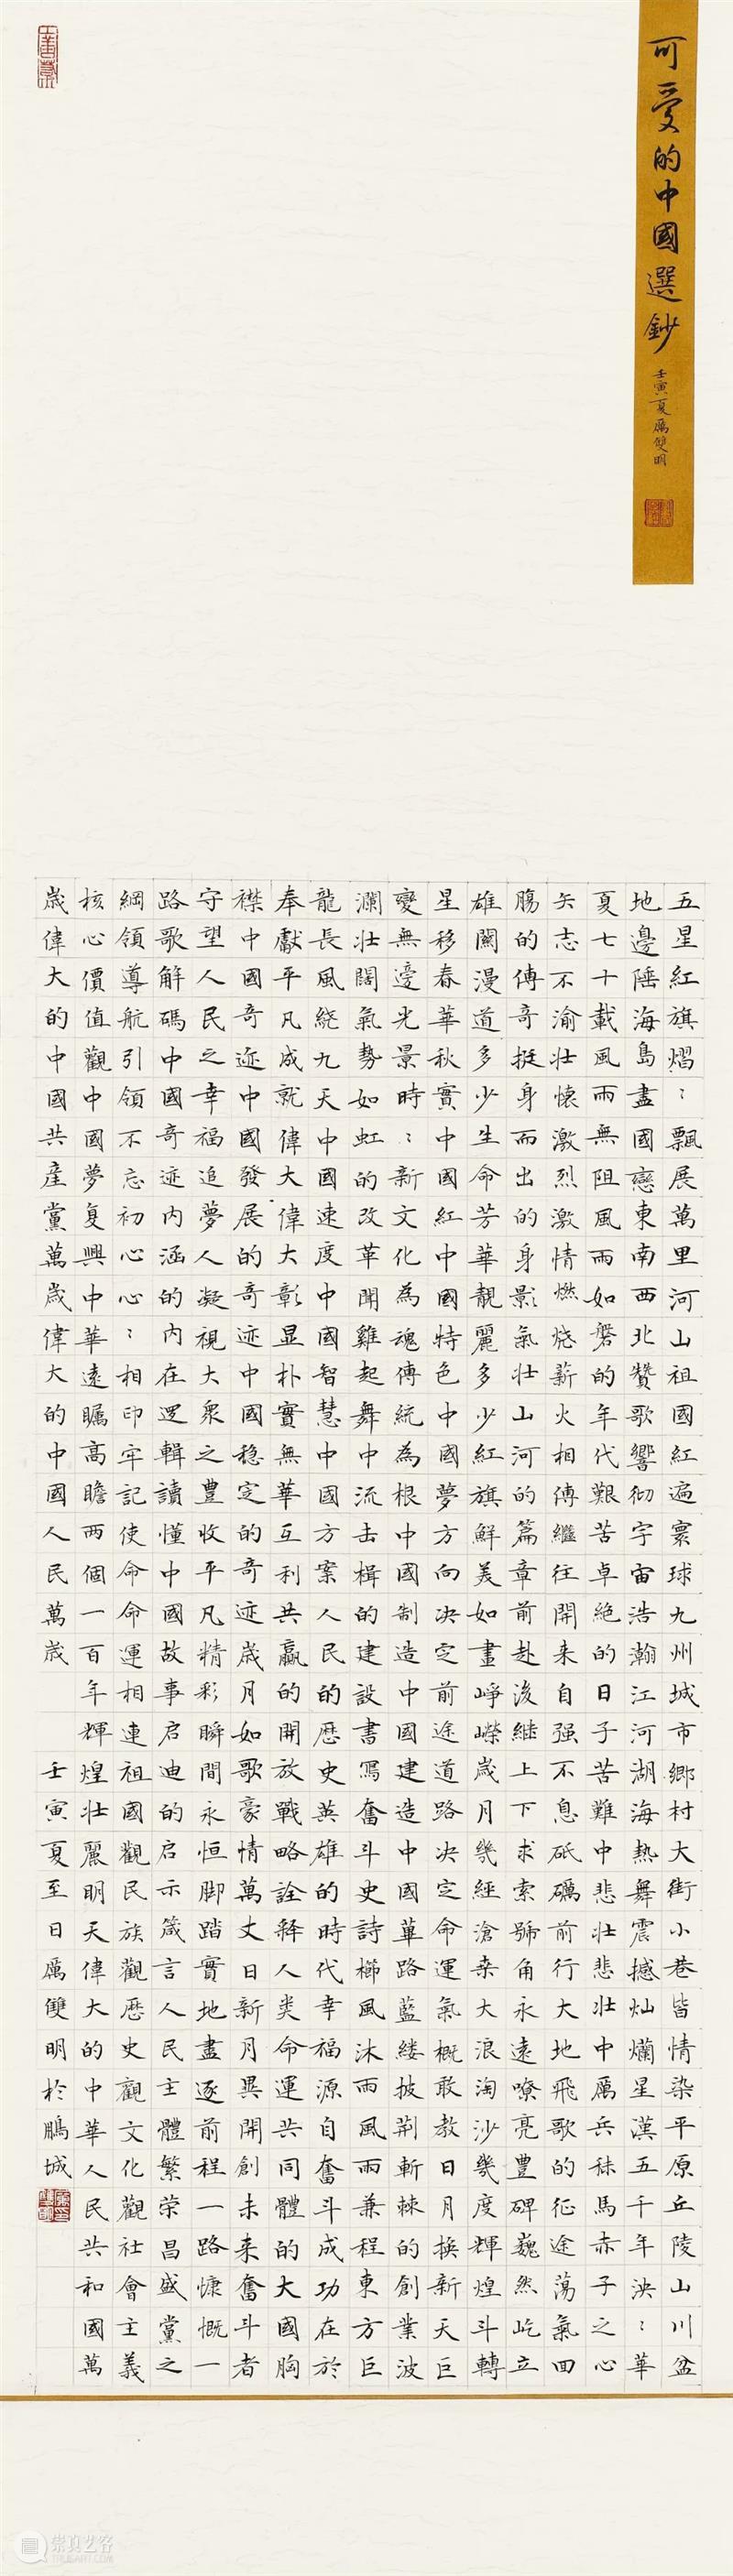 可愛的中國選鈔
壬寅夏厲雙明
五星紅旗熠:飄展萬里河山祖國紅遍寰球九州城市鄉村大街小巷皆情染平原丘陵山川盆
地邊陲海島盡國戀東南西北贊歌響彻宇宙浩瀚江河湖海熱舞震撼灿爛星漢五千年泱:華
夏七十載風雨無阻風雨如磐的年代艱苦卓絶的日子苦難中悲壯悲壯中厲兵秣馬赤子之心
矢志不渝壮懷激烈激情燃燒薪火相傳繼往開来自强不息砥礪前行大地飛歌的征途蕩氣回
腸的傳奇挺身而出的身影氣壮山河的篇章前赴後继上下求索號角永遠嘹亮豊碑巍然屹立
雄關漫道多少生命芳華靚麗多少紅旗鮮美如畫崢嶸歲月幾經滄桑大浪淘沙幾度輝煌斗轉
星移春華秋實中國紅中國特色中國夢方向决定前途道路决定命運氣概敢教日月换新天巨
變無邊光景時:新文化為魂傳統為根中國制造中國建造中國華路藍縷披荆斬棘的創業波
瀾壮闊氣勢如虹的改革開雞起舞中流击楫的建設書寫奮斗史詩櫛風沐雨風雨兼程東方巨
龍長風绕九天中國速度中國智慧中國方案人民的歷史英雄的時代幸福源自奮斗成功在於
奉獻平凡成就偉大偉大彰显朴實無華互利共赢的開放戰略詮释人类命運共同體的大國胸
襟中國奇迹中國發展的奇迹中國穩定的奇迹歲月如歌豪情萬丈日新月異開創未来奮斗者
守望人民之幸福追夢人凝視大衆之豊收平凡精彩瞬間永恒脚踏實地盡逐前程一路慷慨一
路歌解碼中國奇迹内涵的内在逻輯讀懂中國故事启迪的启示箴言人民主體繁荣昌盛黨之
綱領導航引領不忘初心心:相印牢記使命命運相連祖國觀民族觀歷史觀文化觀社會主義
核心價值觀中國夢复興中華遠矚高瞻两個一百年輝煌壮麗明天偉大的中華人民共和國萬
歲偉大的中國共產黨萬歲偉大的中國人民萬歲 壬寅夏至日厲雙明於鵬城
崇真艺客